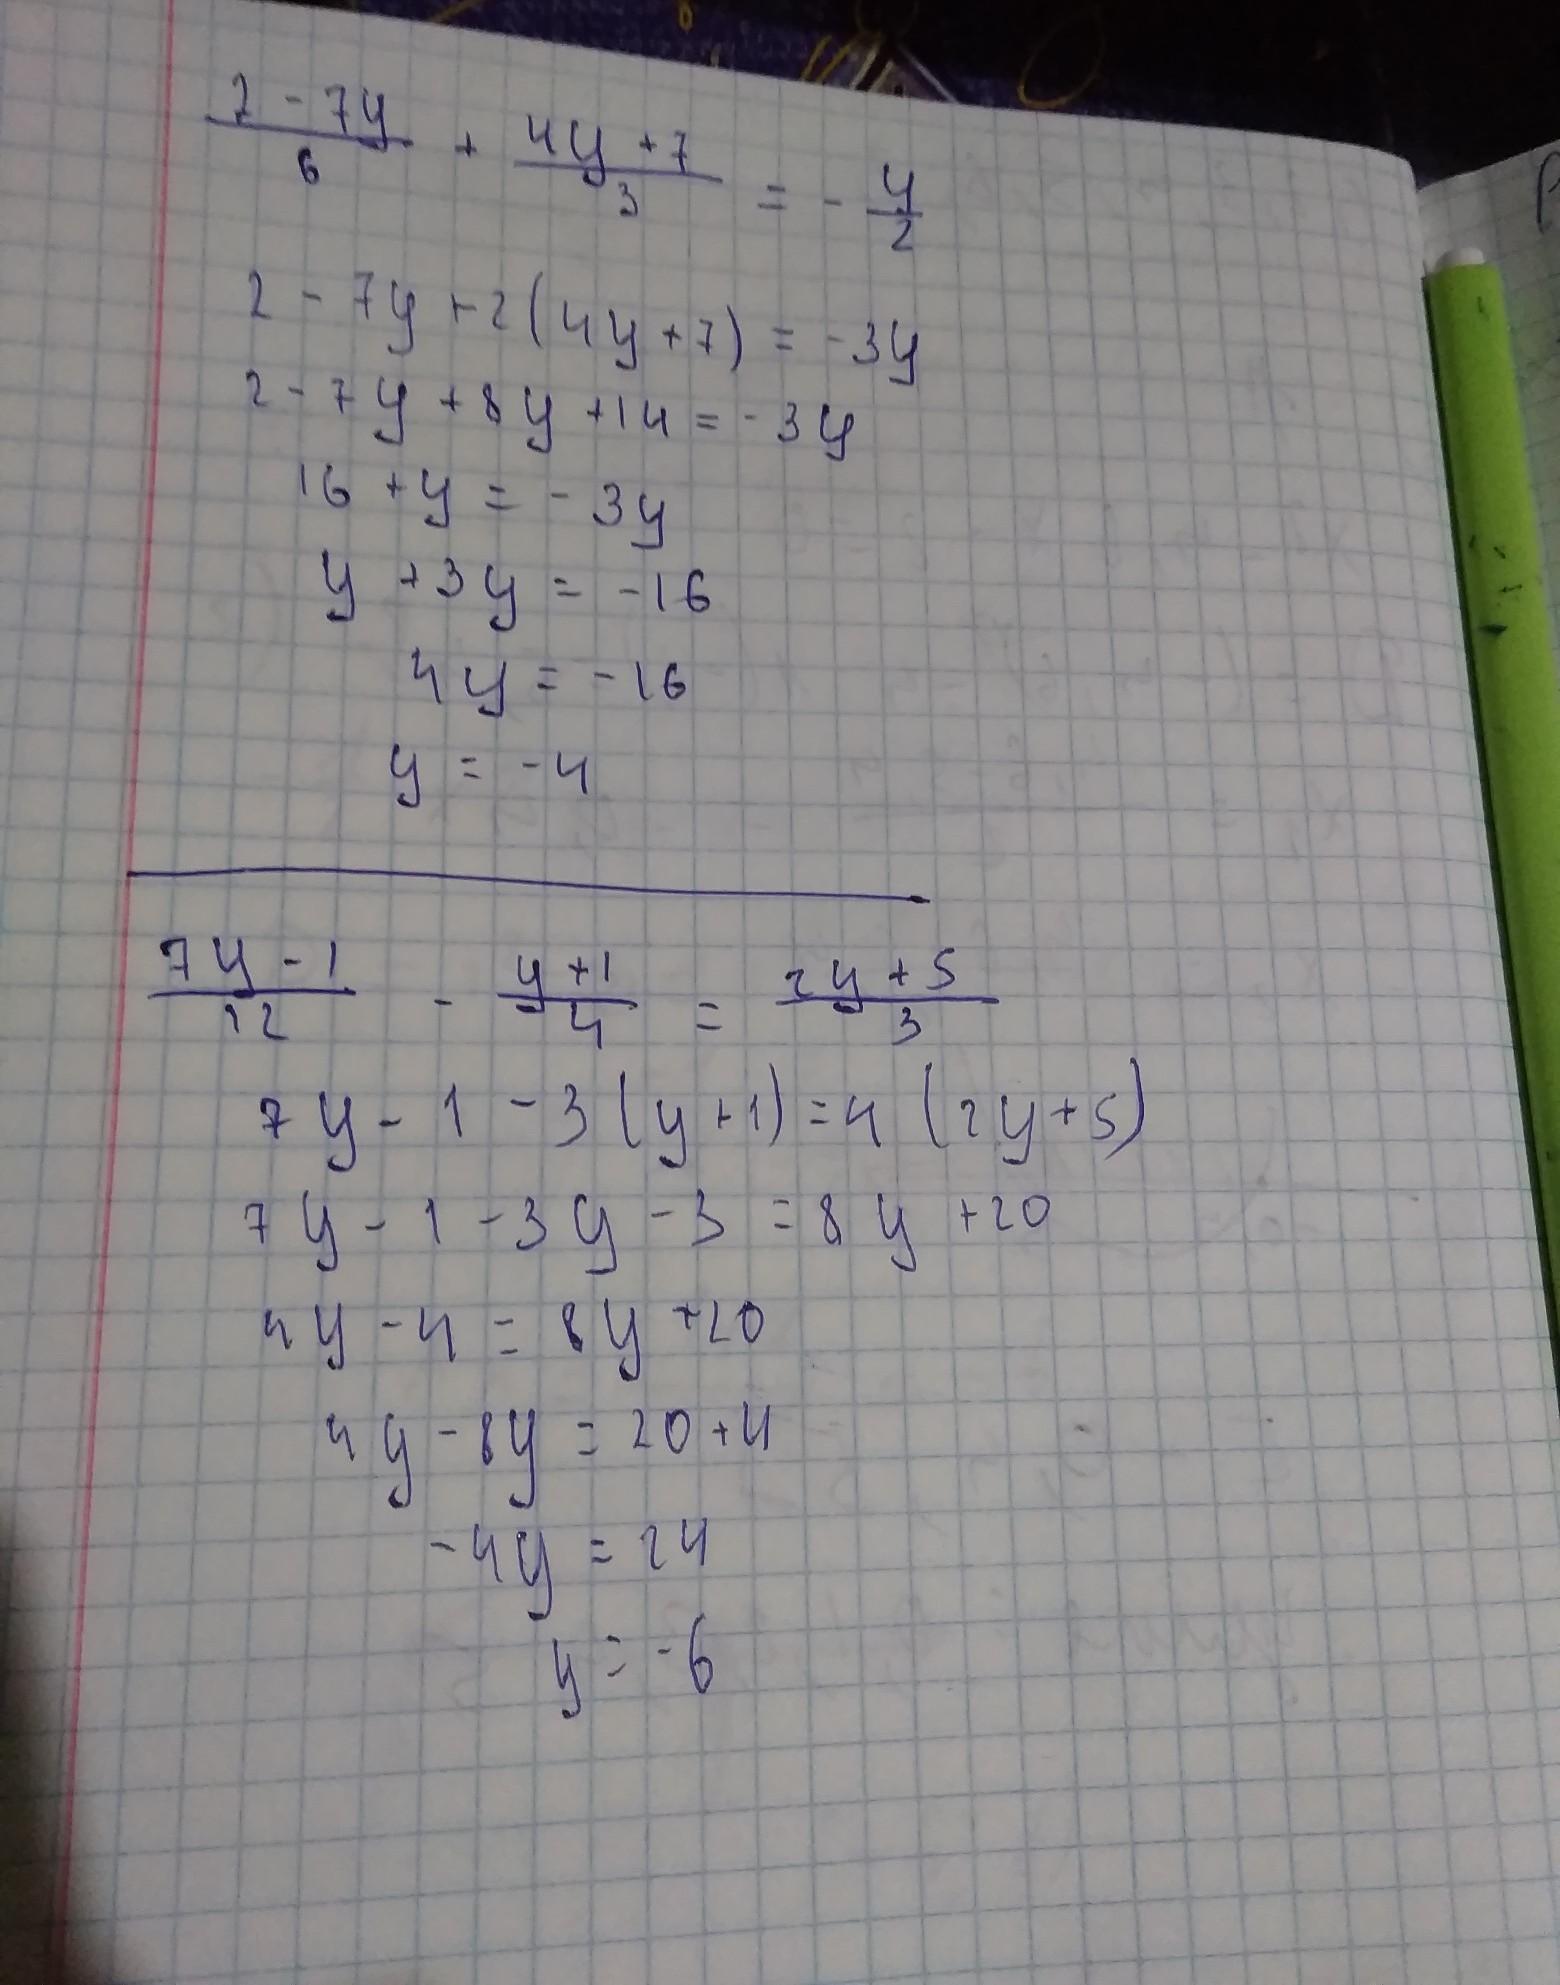 (2 - 7y)/6 + (4y + 7)/3 = - y/2
2 - 7y + 2(4y + 7) = -3y
2 - 7y + 8y + 14 = -3y
16 + y = - 3y
y + 3y = -16
4y = -16
y = -4
(7y - 1)/12 - (y + 1)/4 = (2y + 5)/3
7y - 1 - 3(y + 1) = 4(2y + 5)
7y - 1 - 3y - 3 = 8y + 20
4y - 4 = 8y + 20
4y - 8y = 20 + 4
-4y = 24
y = -6